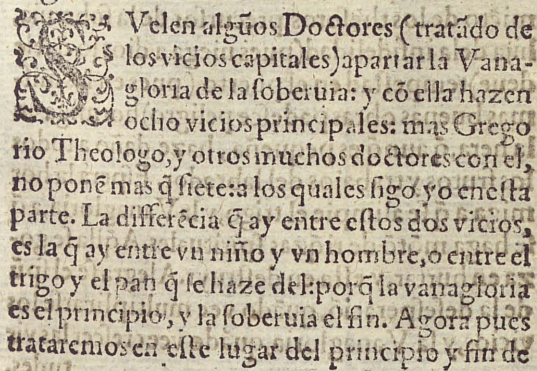 SVelen algũos Doctores (tratãdo de
los vicios capitales) apartar la Vana-
gloria de la soberuia: y cõ ella hazen
ocho vicios principales: mas Grego
rio Theologo, y otros muchos doctores con el,
no ponẽ mas q̃ siete: a los quales sigo yo en esta
parte. La differẽcia q̃ ay entre estos dos vicios,
es la q̃ ay entre vn niño y vn hombre, o entre el
trigo y el pan q̃ se haze del: porq̃ la vanagloria
es el principio, y la soberuia el fin. Agora pues
trataremos en este lugar del principio y fin de